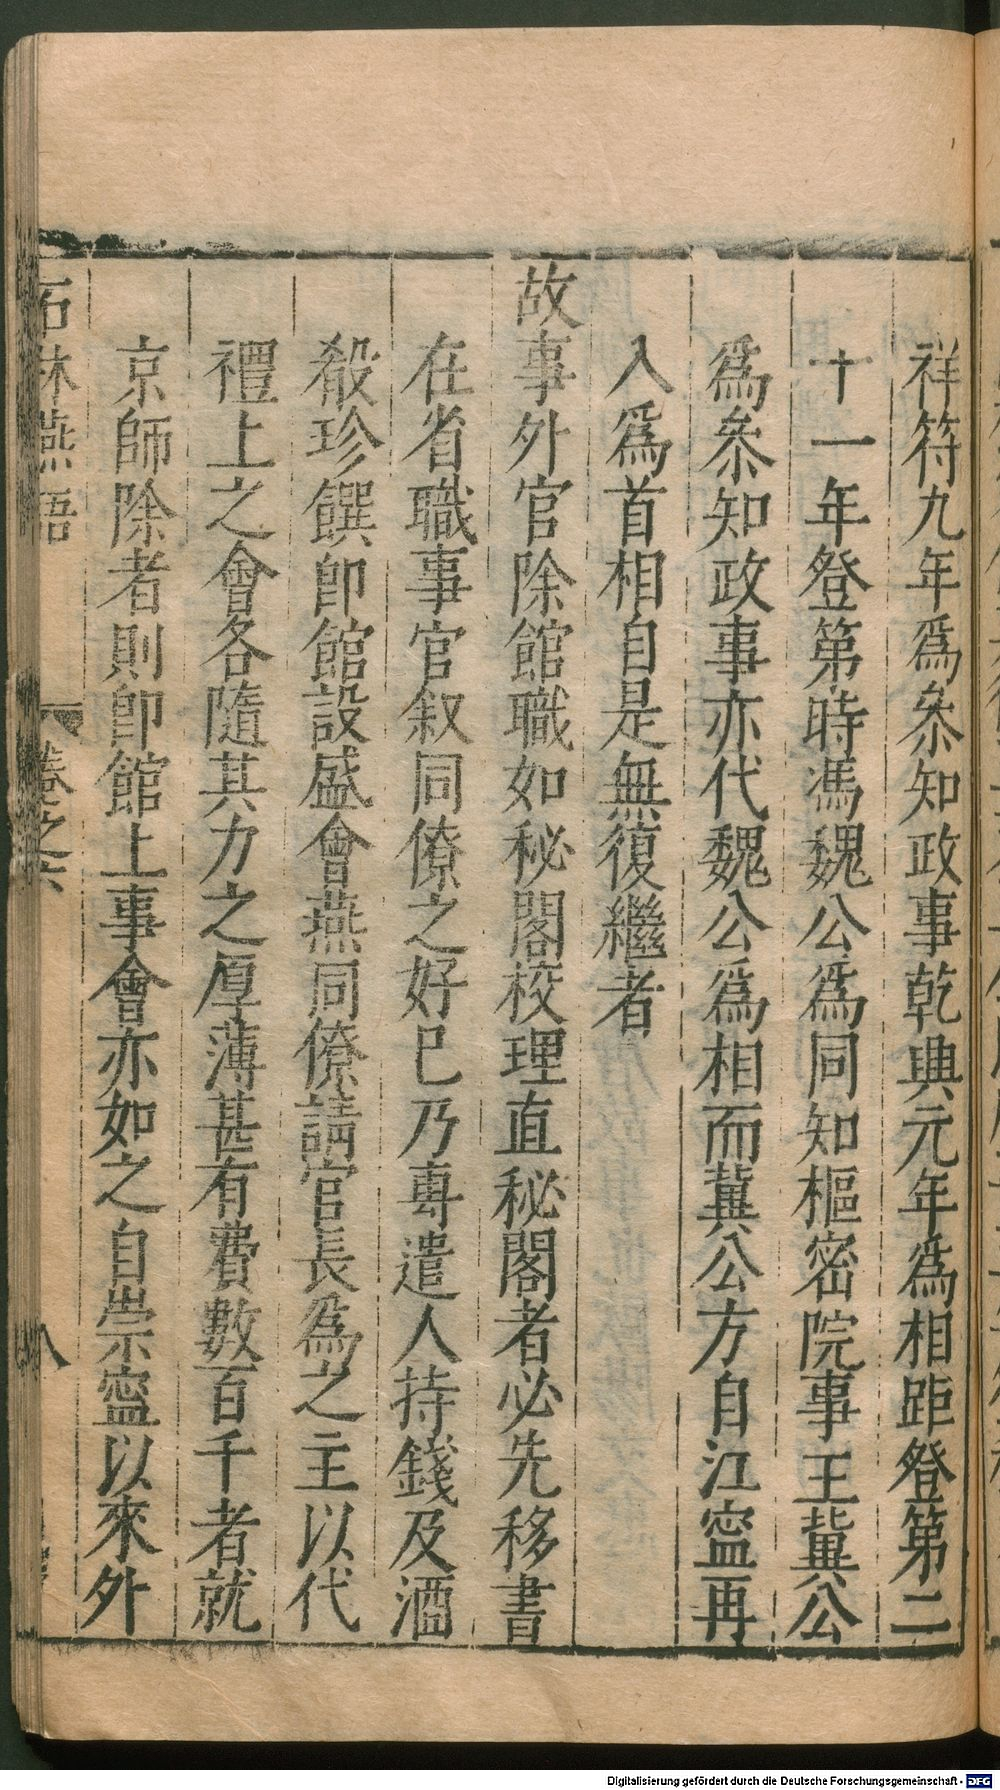 祥符九年爲叅知政事乾興元年爲相距登第二
十一年登第時馮魏公爲同知樞密院事王冀公
爲叅知政事亦代魏公爲相而冀公方自江寍再
入爲首相自是無復繼者
故事外官除館職如秘閣校理直秘閣者必先移書
在省職事官叙同僚之好已乃專遣人持錢及酒
殽珍饌卽館設盛會燕同僚請官長爲之主以代
禮上之會各隨其力之厚薄甚有費數百千者就
京師除者則卽館上事會亦如之自崇寍以來外
石林燕語 卷之六 八
Digitalisierung gefördert durch die Deutsche Forschungsgemeinschaft - DFG